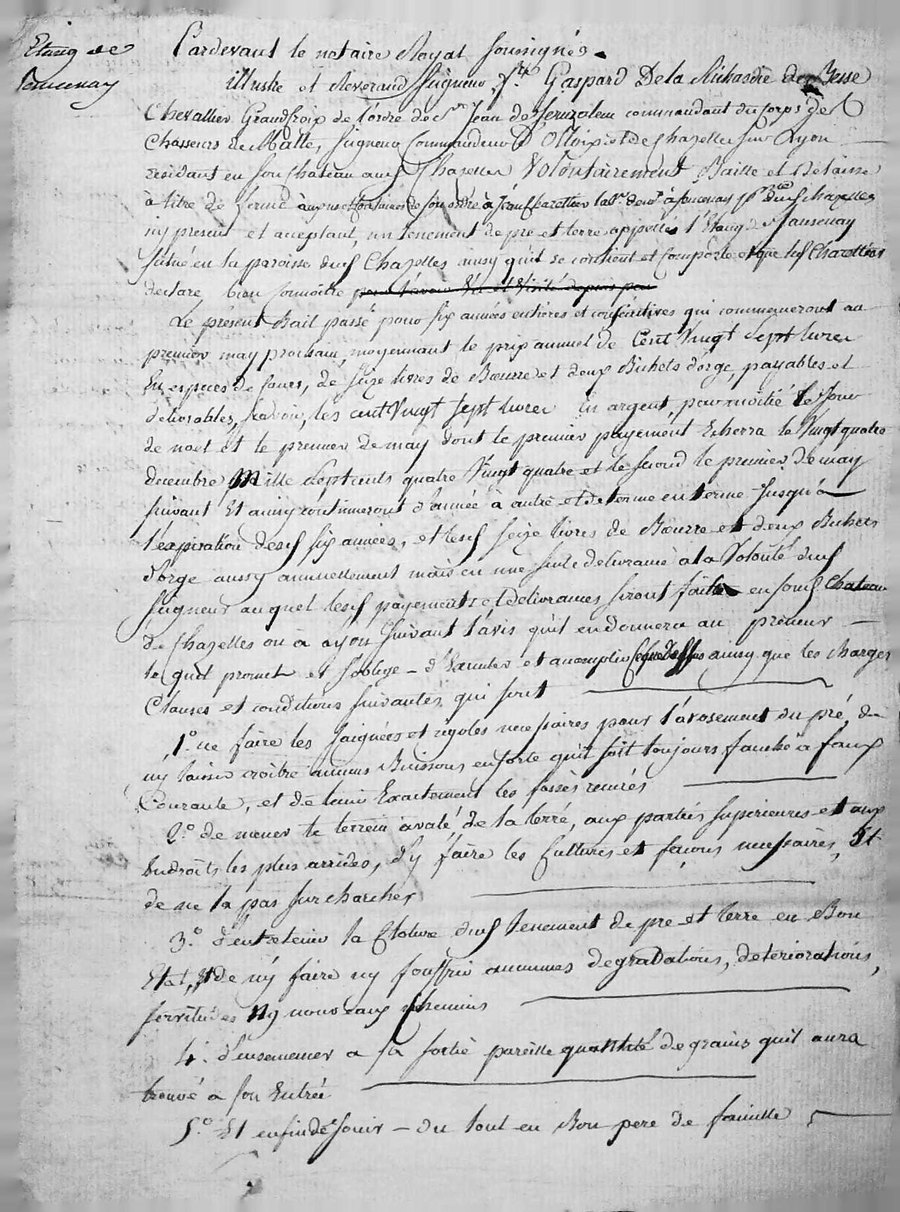 Etang de
Pardevant le notaire Royal soussigné.
illustre et Reverand Seigneur fr. Gaspard De la Richardie de Besse
Chevallier Grand Croix de l'ordre de St. Jean de Jerusalem commandant du Corps des
Chasseurs de Malte, Seigneur Commandeur et de Chazelles sur Lyon
résidant en son Chateau aud. Chazelles Volontairement Baille et délaisse
à titre de ferme à
icy présent et acceptant, un tenement de pré et terre appellés l'Etang de
situé en la paroisse dud. Chazelles ainsy qu'il se contient et comporte et que led.
declare bien connoître
Le présent Bail passé pour six années entières et consécutives qui commenceront au
premier may prochain, moyennant le prix annuel de Cent Vingt sept livres
En espèces de cours, de seize livres de Beurre et deux Bichets d'orge, payables et
délivrables, scavoir, les cent Vingt sept livres En argent, par moitié le Jour
de noel et le premier de may dont le premier payement Echerra le Vingt quatre
decembre Mille sept cents quatre Vingt quatre et le second le premier de may
suivant Et ainsy continueront d'année à autre et de terme en terme jusqu'à
l'expiration desd. six années, et lesd. seize livres de Beurre et deux Bichets
d'orge aussy annuellement mais en une seule délivrance à la Volonté dud.
Seigneur auquel lesd. payements et délivrances seront faites en sond. Chateau
de Chazelles ou à Lyon suivant l'avis qu'il en donnera au preneur
le quel promet et s'oblige d'Exécuter et accomplir ainsy que les charges
Clauses et conditions suivantes, qui sont
1.° de faire les saignées et rigoles necessaires pour l'arosement du pré, de
ny laisser croître aucuns Buissons en sorte qu'il soit toujours fauché a faux
Courante, et de tenir Exactement les fossés recurés
2.° de mener le terrein avalé de la terre, aux parties superieures et aux
Endroits les plus arrides, d'y faire les Cultures et façons necessaires, Et
de ne la pas surcharcher
3.° d'entretenir la Cloture dud. tenement de pré et terre en Bon
Etat, et de n'y faire ny souffrir aucunes degradations, deteriorations,
servitudes ny nouveaux chemins
4.° d'ensemencer a sa sortie pareille quantité de grains qu'il aura
trouvé a son Entrée
5.° Et enfin de Jouir du tout en Bon pere de famille